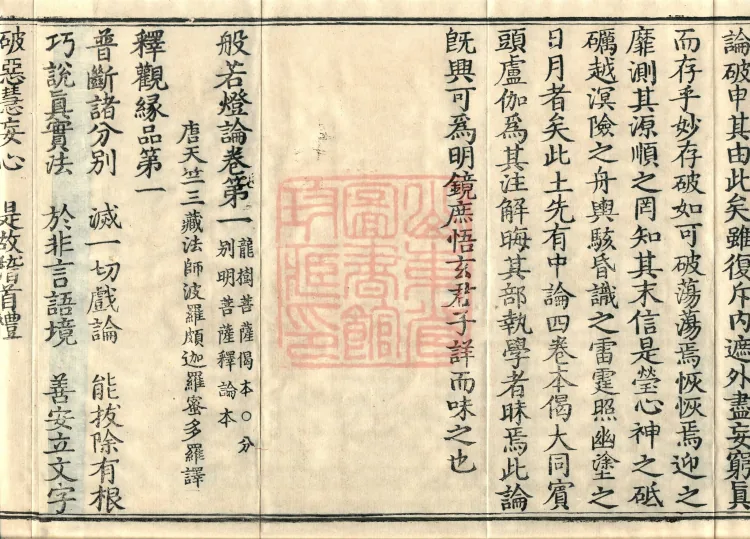 論破申其由此矣雖復斥内遮外盡妄窮眞
而存乎妙存破如可破蕩蕩焉恢恢焉迎之
靡測其源順之罔知其末信是瑩心神之砥
礪越溟險之舟輿駭昏識之雷霆照幽塗之
日月者矣此土先有中論四卷本偈大同賓
頭盧伽爲其注解晦其部執學者昧焉此論
既興可爲明鏡庶悟玄君子詳而味之也
般若燈論卷第一
龍樹菩薩偈本○分
别明菩薩釋論本
唐天竺三藏法師波羅頗迦羅蜜多羅譯
釋觀緣品第一
普斷諸分别 滅一切戲論 能拔除有根
巧說眞實法 於非言語境 善安立文字
破惡慧妄心 是故稽首禮